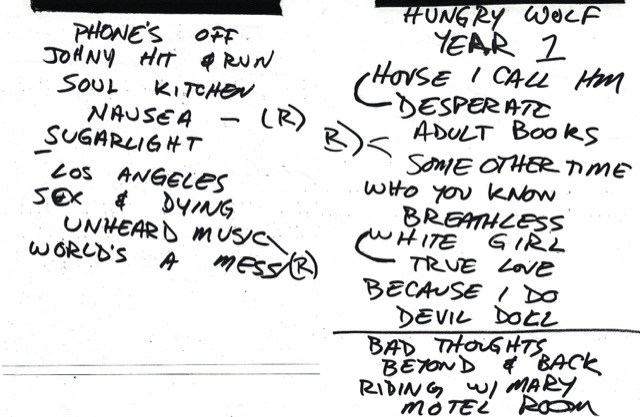 PHONE'S OFF
JOHNY HIT & RUN
SOUL KITCHEN
NAUSEA - (R)
SUGARLIGHT
LOS ANGELES
SEX & DYING
UNHEARD MUSIC
WORLD'S A MESS (R)
HUNGRY WOLF
YEAR 1
HOUSE I CALL HM
DESPERATE
ADULT BOOKS
R) < SOME OTHER TIME
WHO YOU KNOW
BREATHLESS
WHITE GIRL
TRUE LOVE
BECAUSE I DO
DEVIL DOLL
BAD THOUGHTS
BEYOND & BACK
RIDING W/ MARY
MOTEL ROOM